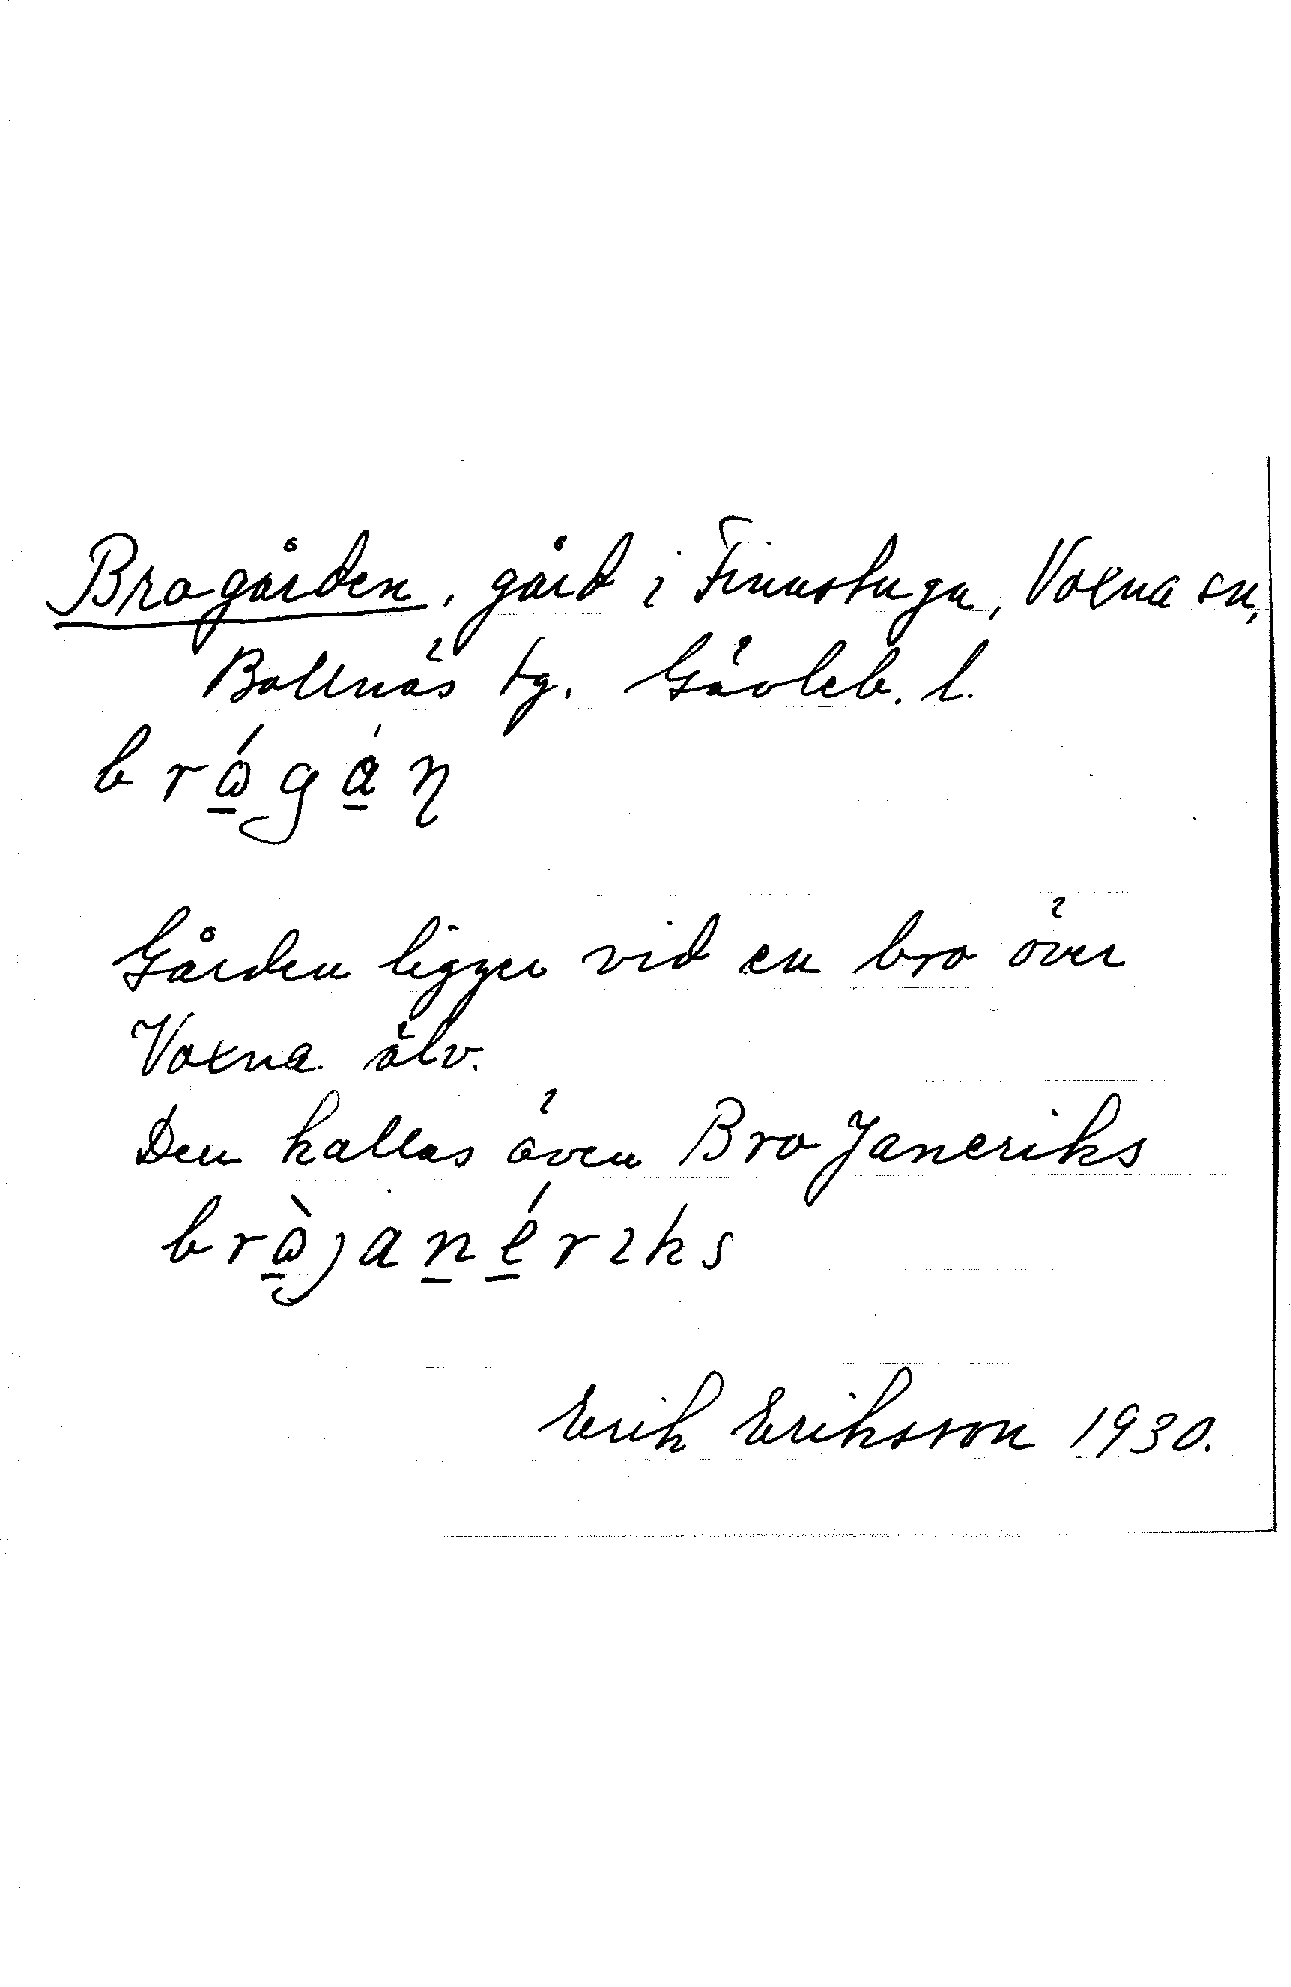 Brogården, gård i Finnstuga, Voxna sn,
Bollnäs tg. Gävleb. l.
brógán
Gården ligger vid en bro över
Voxna älv.
Den kallas även Bro Janeriks
bròjanériks
Erik Eriksson 1930.